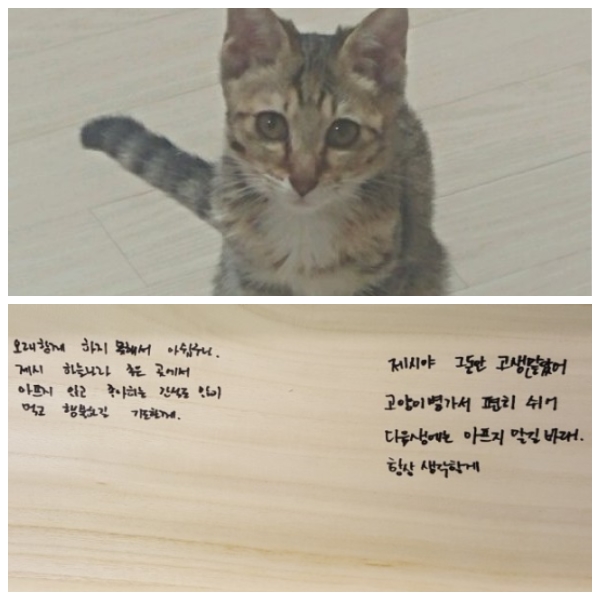 오래함께 하지 못해서 아쉽구나.
제시 하늘나라 좋은 곳에서
아프지 않고 좋아하는 간식도 많이
먹고 행복하길 기도할게.
제시야 그동안 고생많았어
고양이별가서 편히 쉬어
다음생에는 아프지 말길 바래.
항상 생각할게